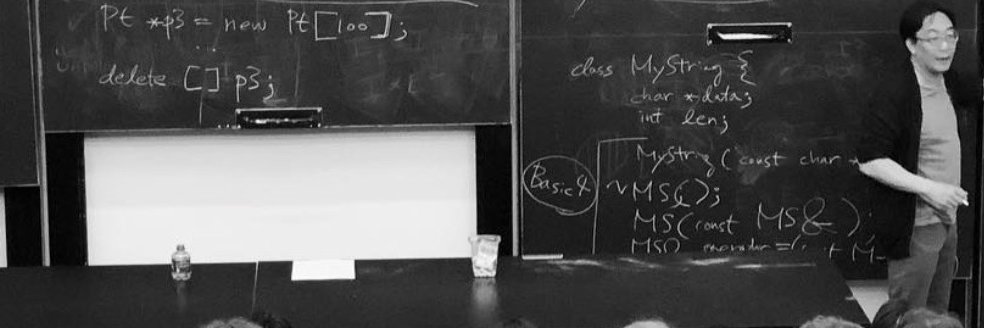 Pt *p3 = new Pt[100];
...
delete [] p3;
class MyString {
char *data;
int len;
Basic 4
MyString(const char *
~MS();
MS(const MS& );
MS&